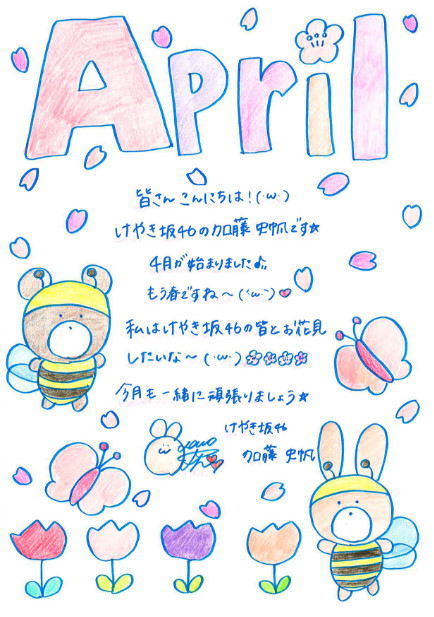 April
皆さんこんにちは！(･ω･)
けやき坂46の加藤史帆です☆
4月が始まりました♪
もう春ですね〜(･ω･)♡
私はけやき坂46の皆とお花見
したいな〜(･ω･)✿✿✿✿
今月も一緒に頑張りましょう☆
けやき坂46
加藤 史帆